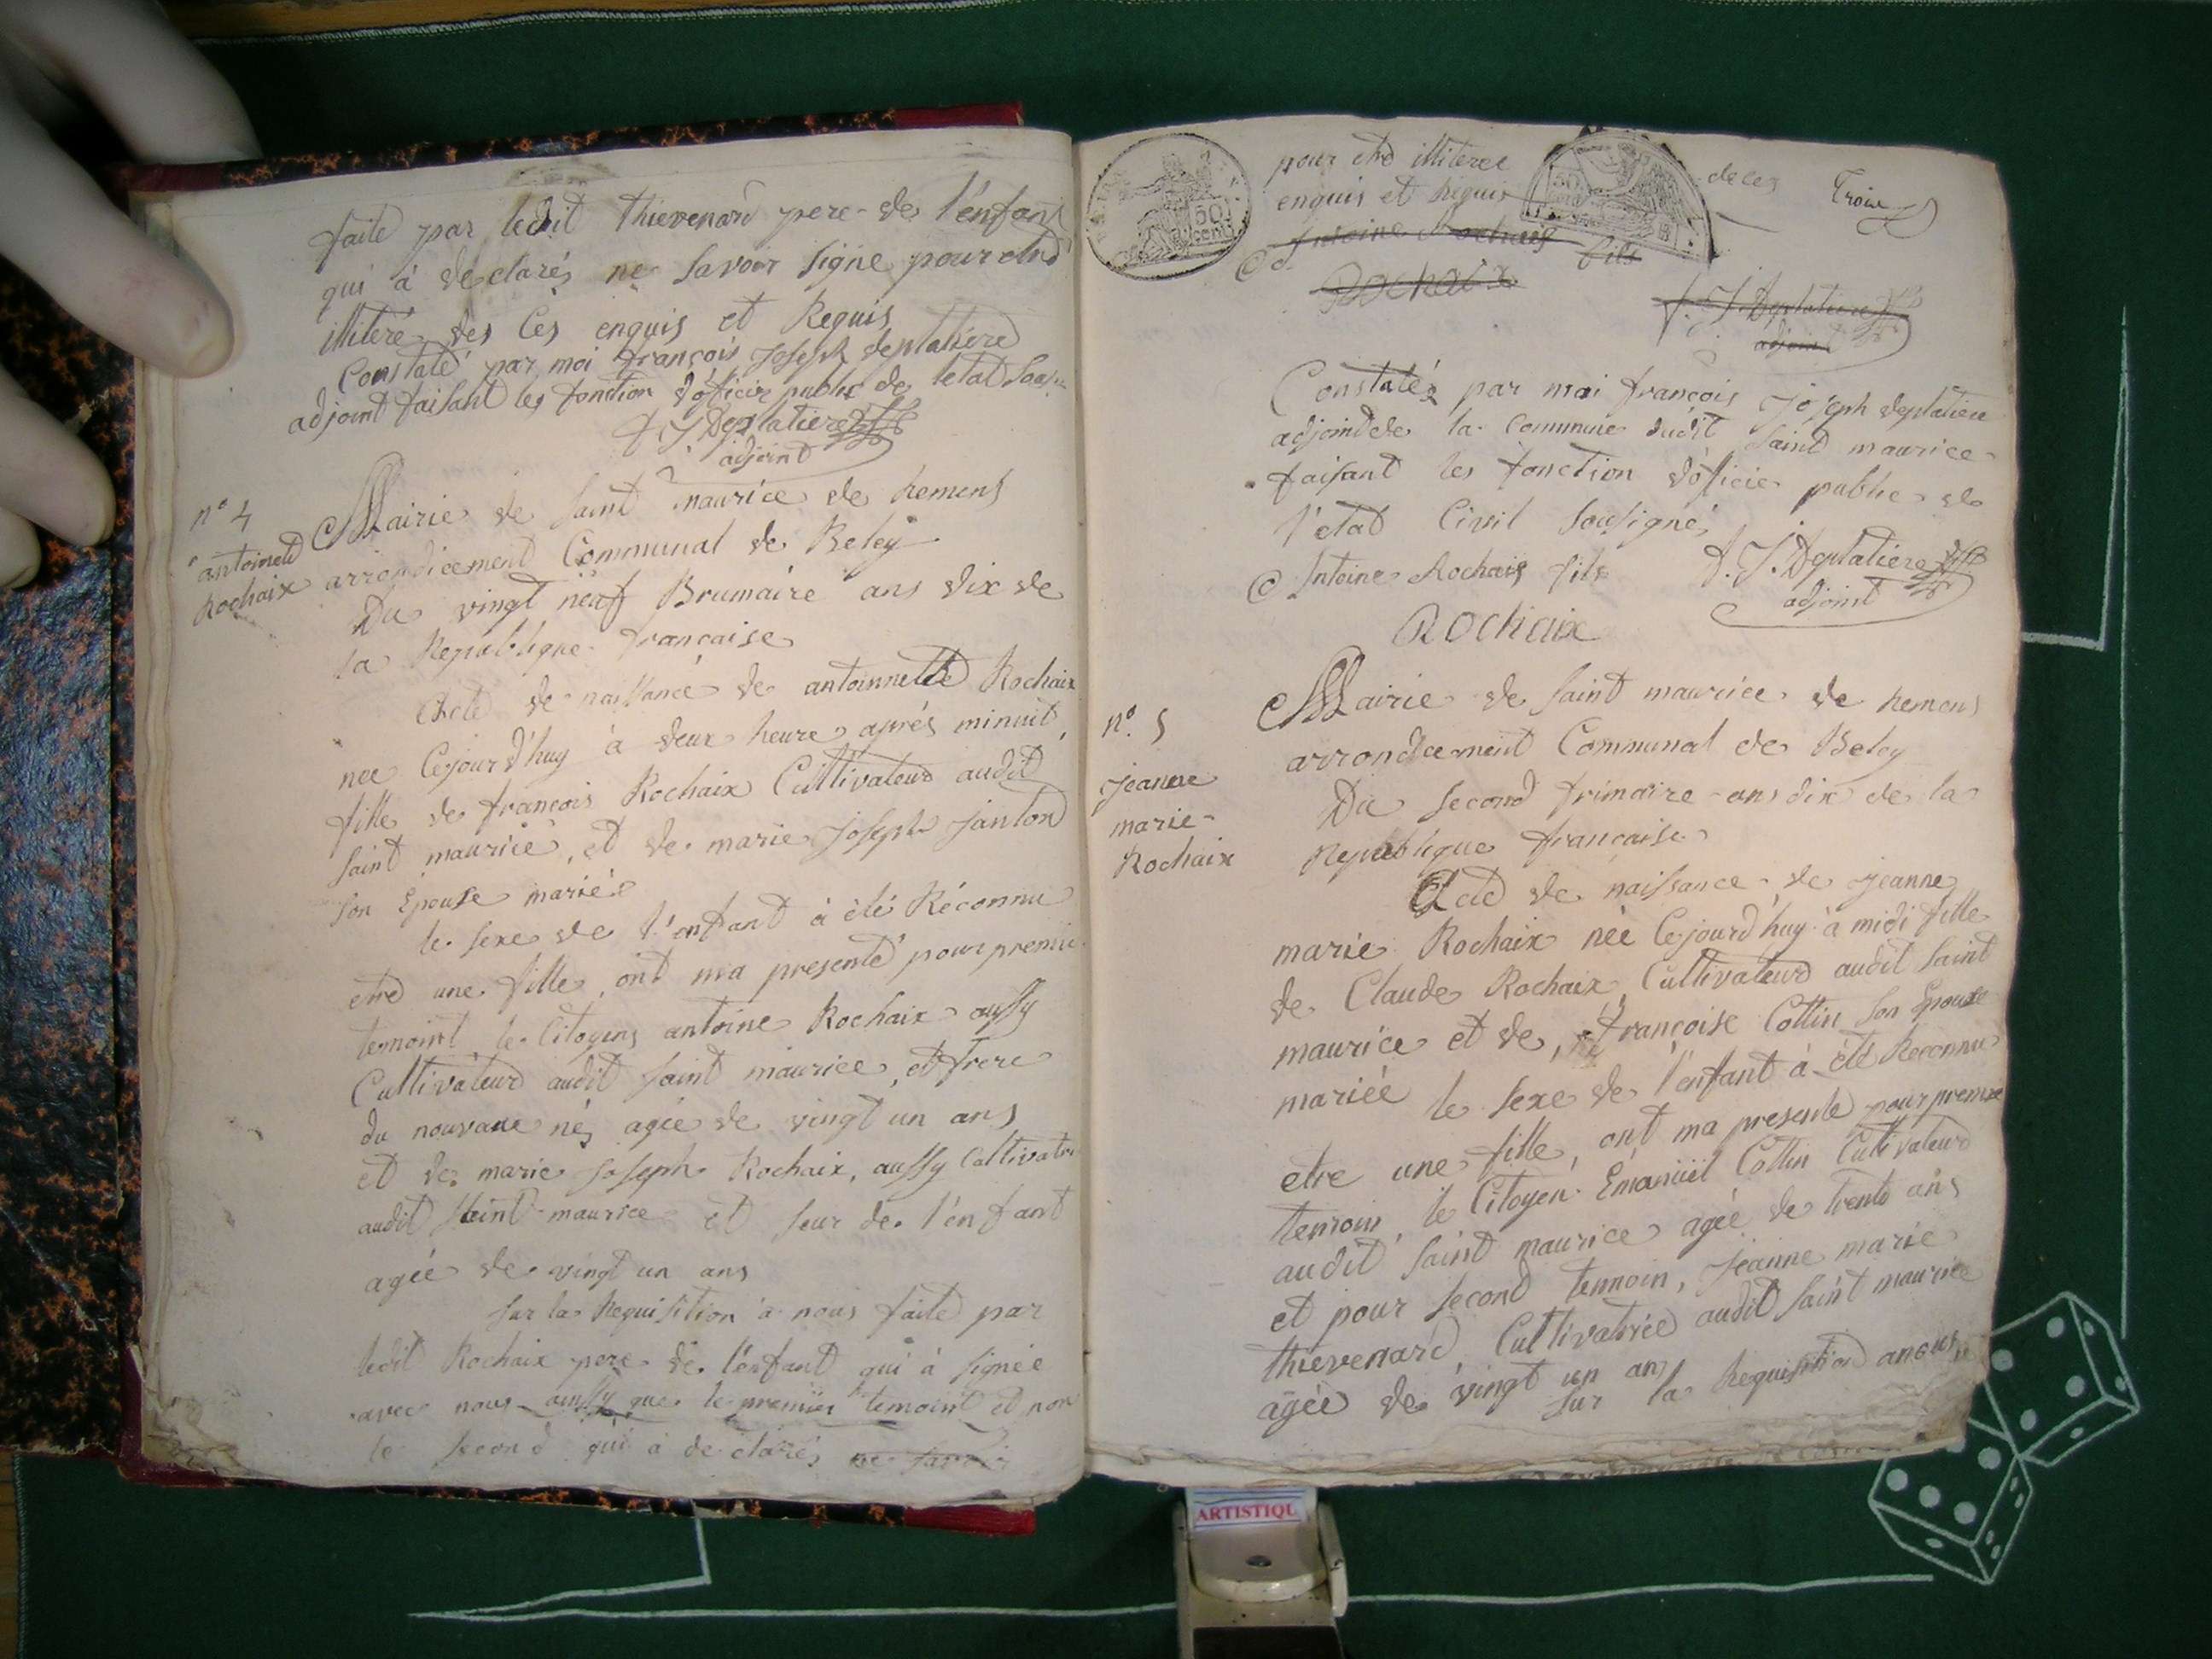 faite par ledit thievenard pere de l'enfant
qui à déclarés ne savoir signe pour etre
illiteré des Ces enquis et Requis
Constaté par moi françois Joseph deplatiere
adjoint faisant les fonction d'oficier public de letat
F J Deplatiere
adjoint
n° 4
antoinette
Rochaix
Mairie de saint maurice de hemens
arrondicement Communal de Beley
Du vingt neuf Brumaire ans dix de
la Republique francaise
Acte de naissance de antoinnette Rochaix
nee Cejourd'huy à deux heure aprés minuit,
fille de francois Rochaix Cultivateur audit
saint maurice, et de marie Joseph Janton
son Epouse mariée
le sexe de l'enfant à été Réconnu
etre une fille, ont ma presenté pour premie
temoint le Citoyens antoine Rochaix aussy
Cultivateur audit saint maurice, et frere
du nouvaue nés agée de vingt un ans
et de marie Joseph Rochaix, aussy Caltivatri
audit saint maurice et seur de l'enfant
agée de vingt un ans
sur la Requisition à nous faite par
ledit Rochaix pere de l'enfant qui à signée
avec nous aussy que le premier temoint et non
le second qui à de clarés ne savoir
pour etre illiteree
enquis et Requis
de ces
Troix
50
cent
Antoine Rochaix fils
Rochaix
F. J. Deplatiere
adjoint
Constatés par moi françois Joseph deplatiere
adjoint de la Commune dudit saint maurice
faisant les fonction d'oficie public de
l'etat Civil sousigné
Antoine Rochaix fils
F. J. Deplatiere
adjoint
Rochaix
n° 5
jeanne
marie
Rochaix
Mairie de saint maurice de hemens
arrondicement Communal de Beley
Du second frimaire ans dix de la
Republique francaise
Acte de naissance de jeanne
marie Rochaix née Cejourd'huy à midi fille
de Claude Rochaix Cultivateur audit saint
maurice et de, françoise Collin son Epouse
mariée
le sexe de l'enfant à été Reconnu
etre une fille, ont ma presente pour premie
temoin le Citoyen Emanuel Collin Cultivateur
audit saint maurice agée de trente ans
et pour second temoin, Jeanne marie
thievenard, Cultivatrice audit saint maurice
agée de vingt un ans
sur la Requisition anous
ARTISTIQU